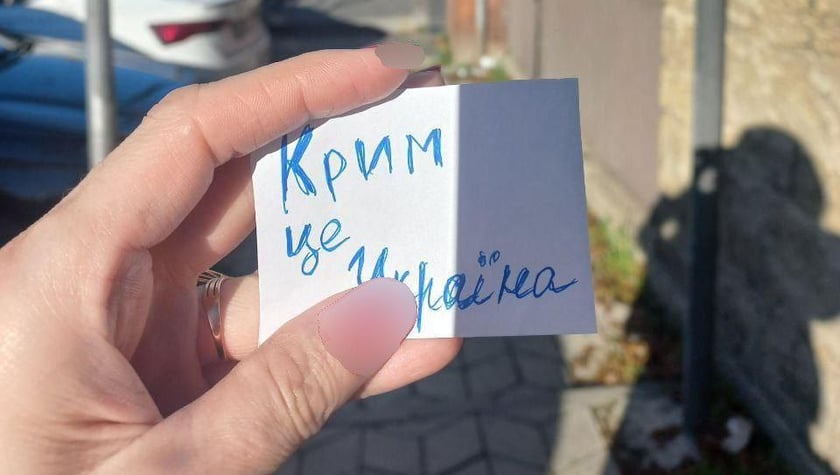 Крим
це
Україна